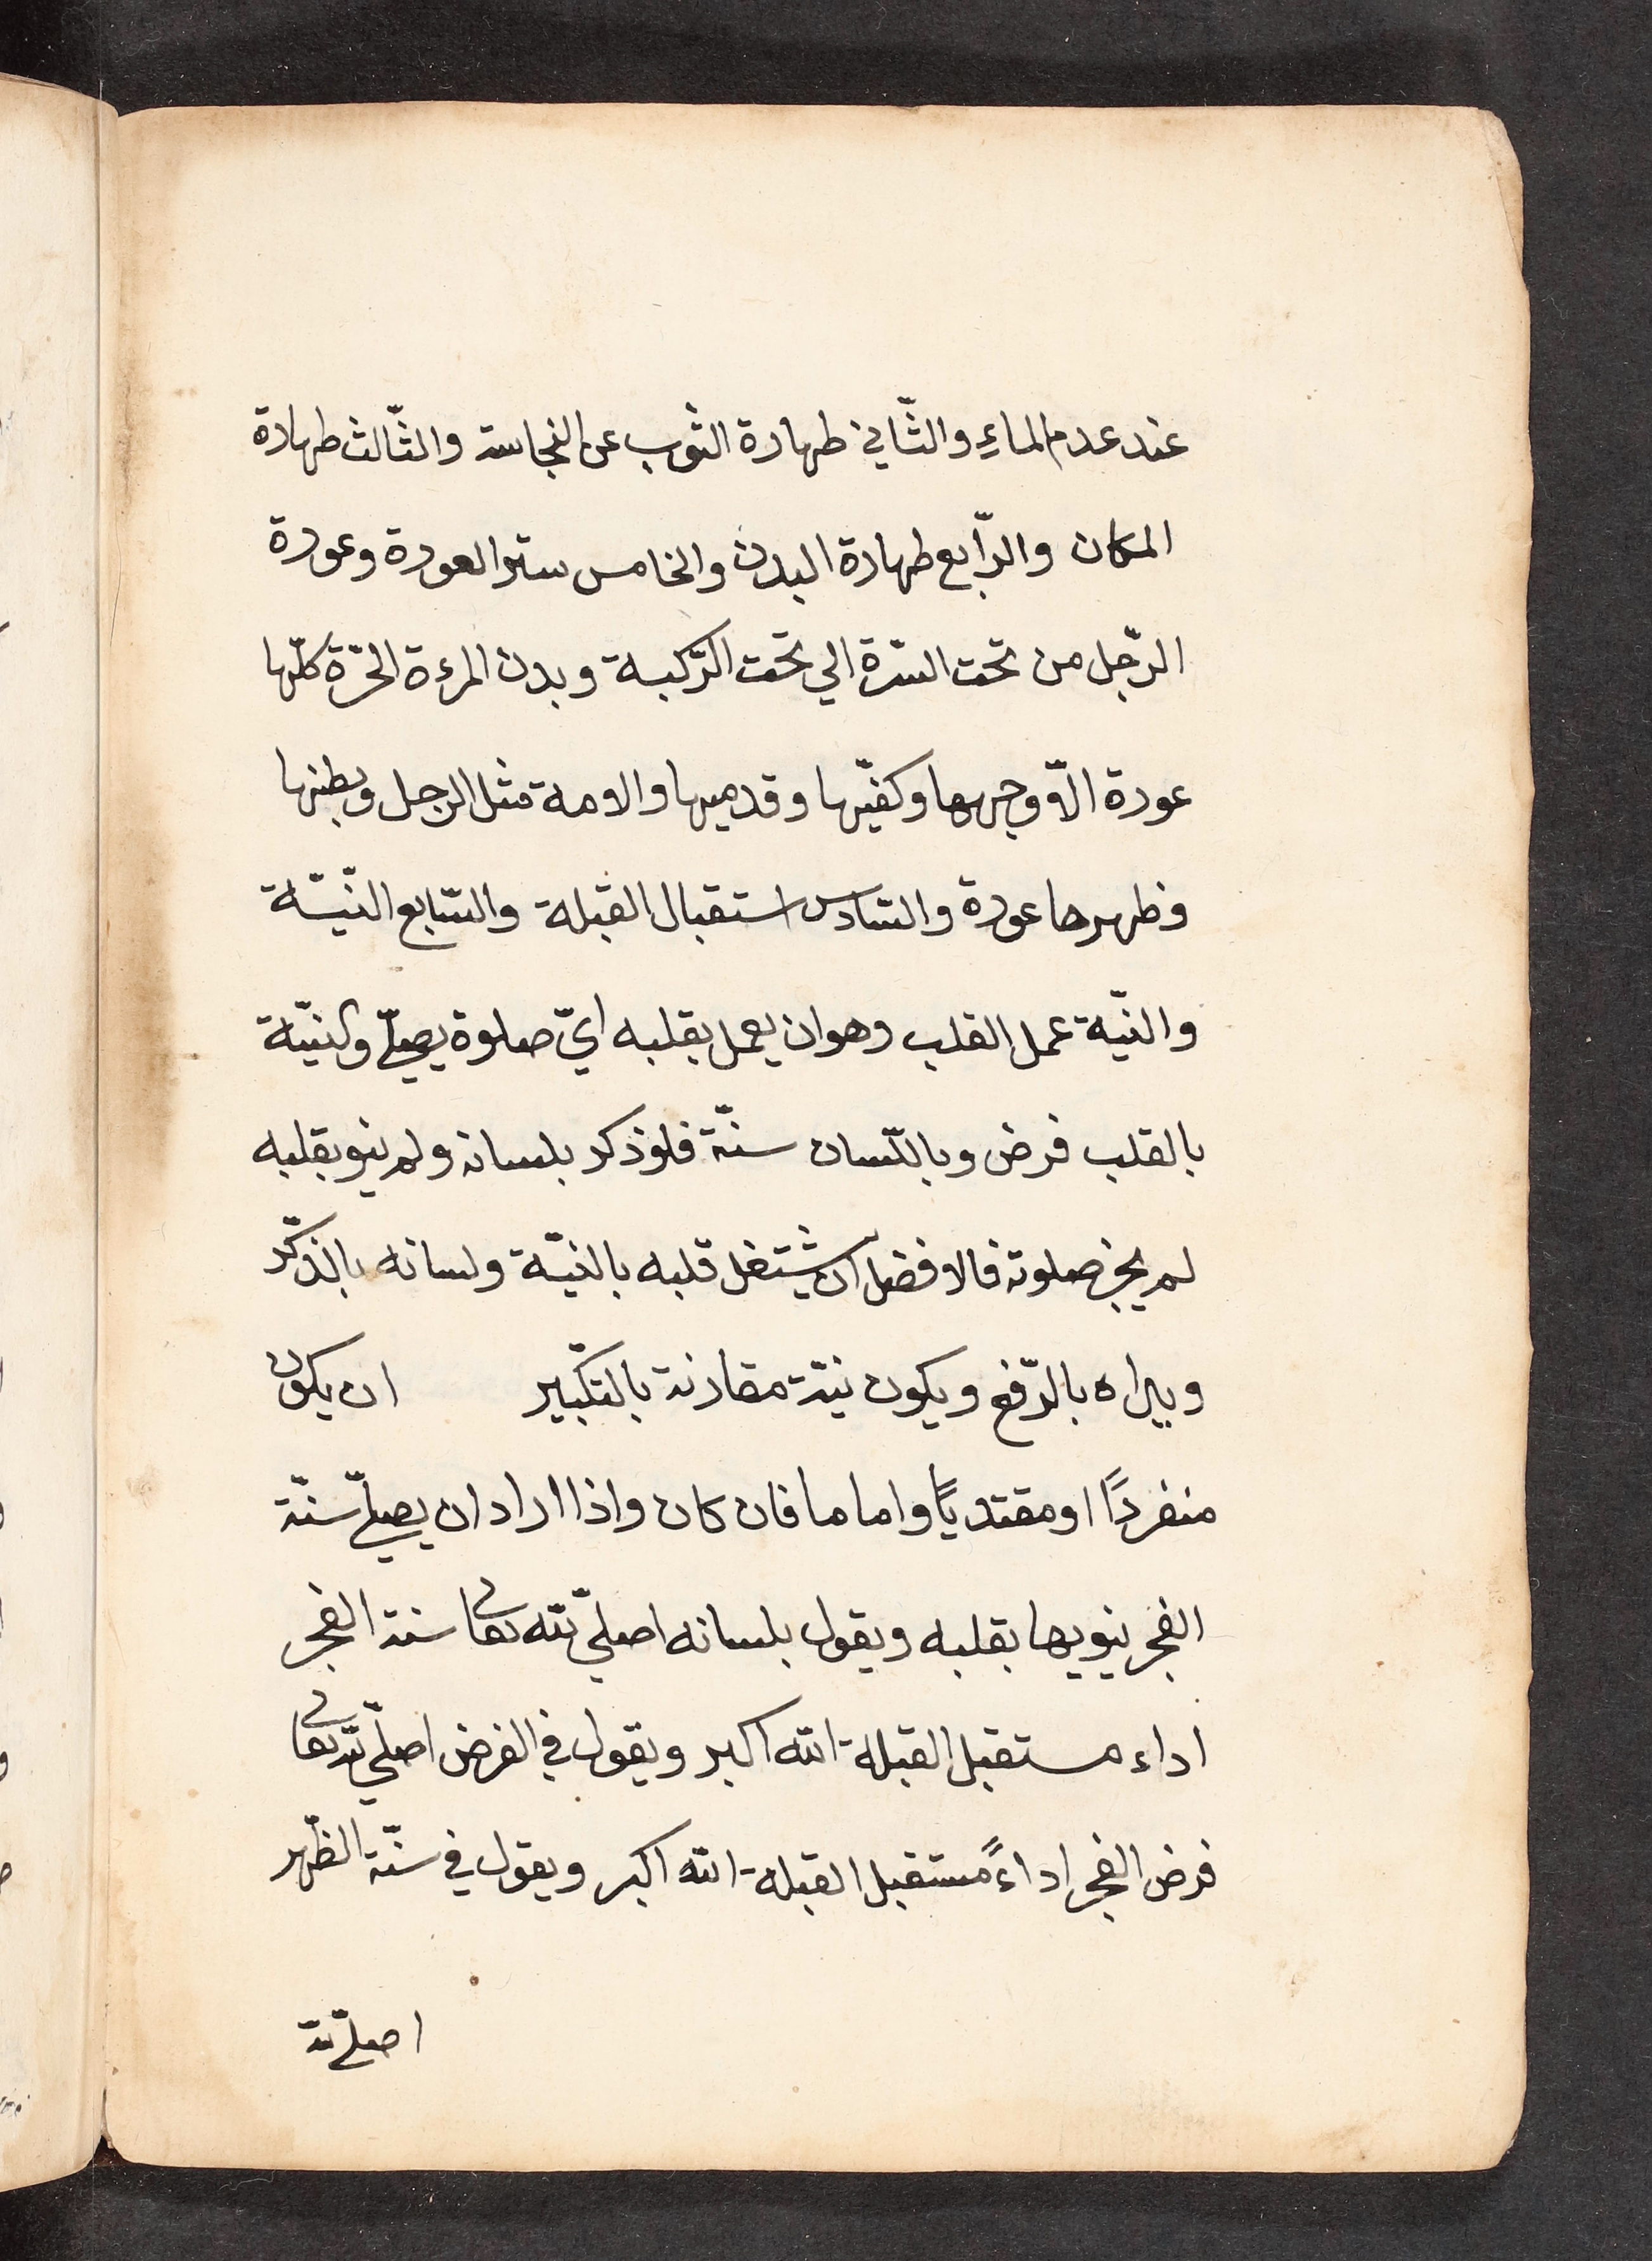 عند عدم الماءِ والثّاني طهارة الثوب عن النجاسة والثّالث طهارة
المكان والرّابع طهارة البدن والخامس ستر العورة وعورة
الرّجل من تحت السّرة الي تحت الرّكبة وبدن المرءة الحرّة كلّها
عورة الاّ وجهها وكفيّها وقدميها والامة مثل الرجل وبطنها
وظهرها عورة والسّادس استقبال القبلة والسّابع النّيّة
والنيّة عمل القلب وهو ان يعمل بقلبه ايّ صلوة يصلّي والنيّة
بالقلب فرض وباللّسان سنّة فلو ذكر بلسانه ولم ينو بقلبه
لم يجز صلوته فالافضل ان يشتغل قلبه بالنيّة ولسانه بالذّكر
ويراه بالرّفع ويكون نيّته مقارنة بالتكبّير ان يكون
منفردًا او مقتديًا واماما فان كان واذا اراد ان يصلّي سنّة
الفجر ينويها بقلبه ويقول بلسانه اصلّي لله تعالى سنة الفجر
اداء مستقبل القبلة الله اكبر ويقول في الفرض اصلّي لله تعالى
فرض الفجر اداءً مستقبل القبلة الله اكبر ويقول في سنّة الظّهر
اصلّي لله